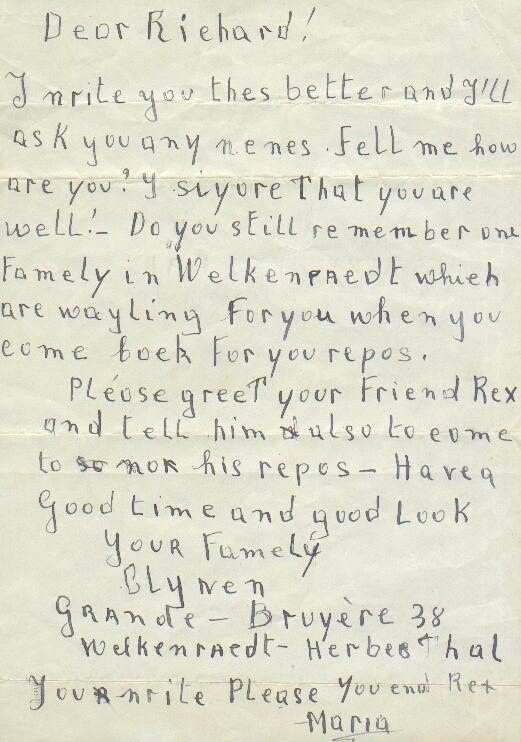 Dear Richard!
I write you thes better and I'll
ask you any nenes. Fell me how
are you? I siyore that you are
well!- Do you still remember one
Famely in Welkenraedt which
are wayling for you when you
come boek for you repos.
Please greet your Friend Rex
and tell him also to come
to his repos - Have a
Good time and good Look
Your Famely
Glynen
Grande - Bruyère 38
Welkenraedt - Herbesthal
You write Please You end Rex
Maria